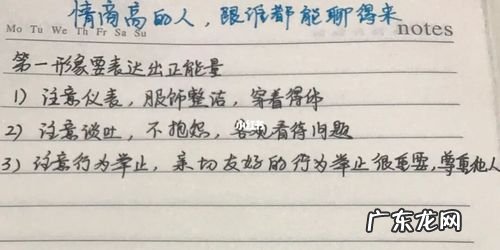 情商高的人，跟谁都能聊得来
Mo Tu We Th Fr Sa Su
notes
第一形象要表达出正能量
1）注意仪表，服饰整洁，穿着得体
2）注意谈吐，不抱怨，客观看待问题
3）注意行为举止，亲切友好的行为举止很重要，尊重他人
小红书
广东龙网